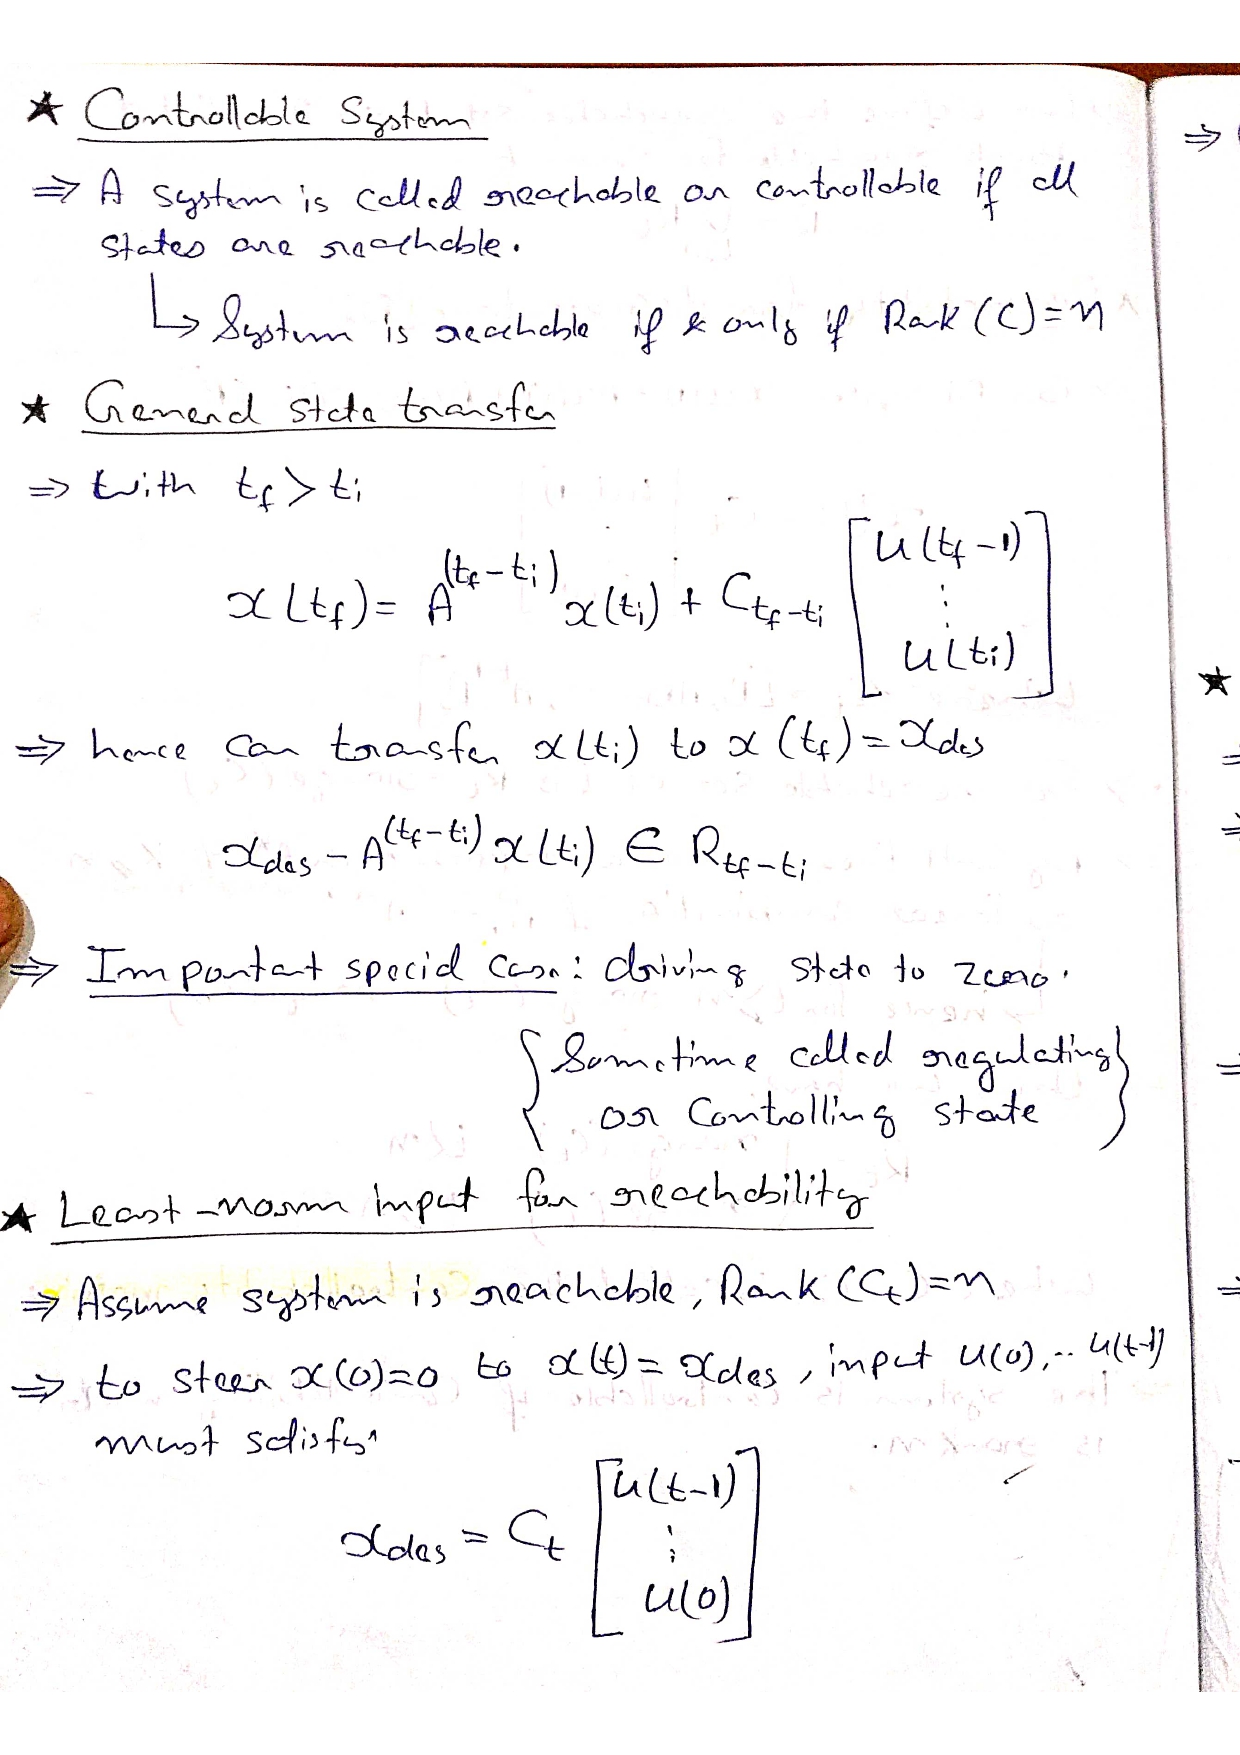 ★ Controllable System
⇒ A system is called reachable or controllable if all
states are reachable.
↳ System is reachable if & only if Rank (C) = n
★ General state transfer
⇒ with t_f > t_i
x(t_f) = A^(t_f - t_i) x(t_i) + C_{t_f - t_i} [u(t_f - 1) ⋮ u(t_i)]
⇒ hence can transfer x(t_i) to x(t_f) = x_des
x_des - A^(t_f - t_i) x(t_i) ∈ R_{t_f - t_i}
⇒ Important special case: driving state to zero.
{Sometime called regulating
or Controlling state}
★ Least-norm input for reachability
⇒ Assume system is reachable, Rank (C_t) = n
⇒ to steer x(0)=0 to x(t) = x_des, input u(0),.. u(t-1)
must satisfy
x_des = C_t [u(t-1) ⋮ u(0)]